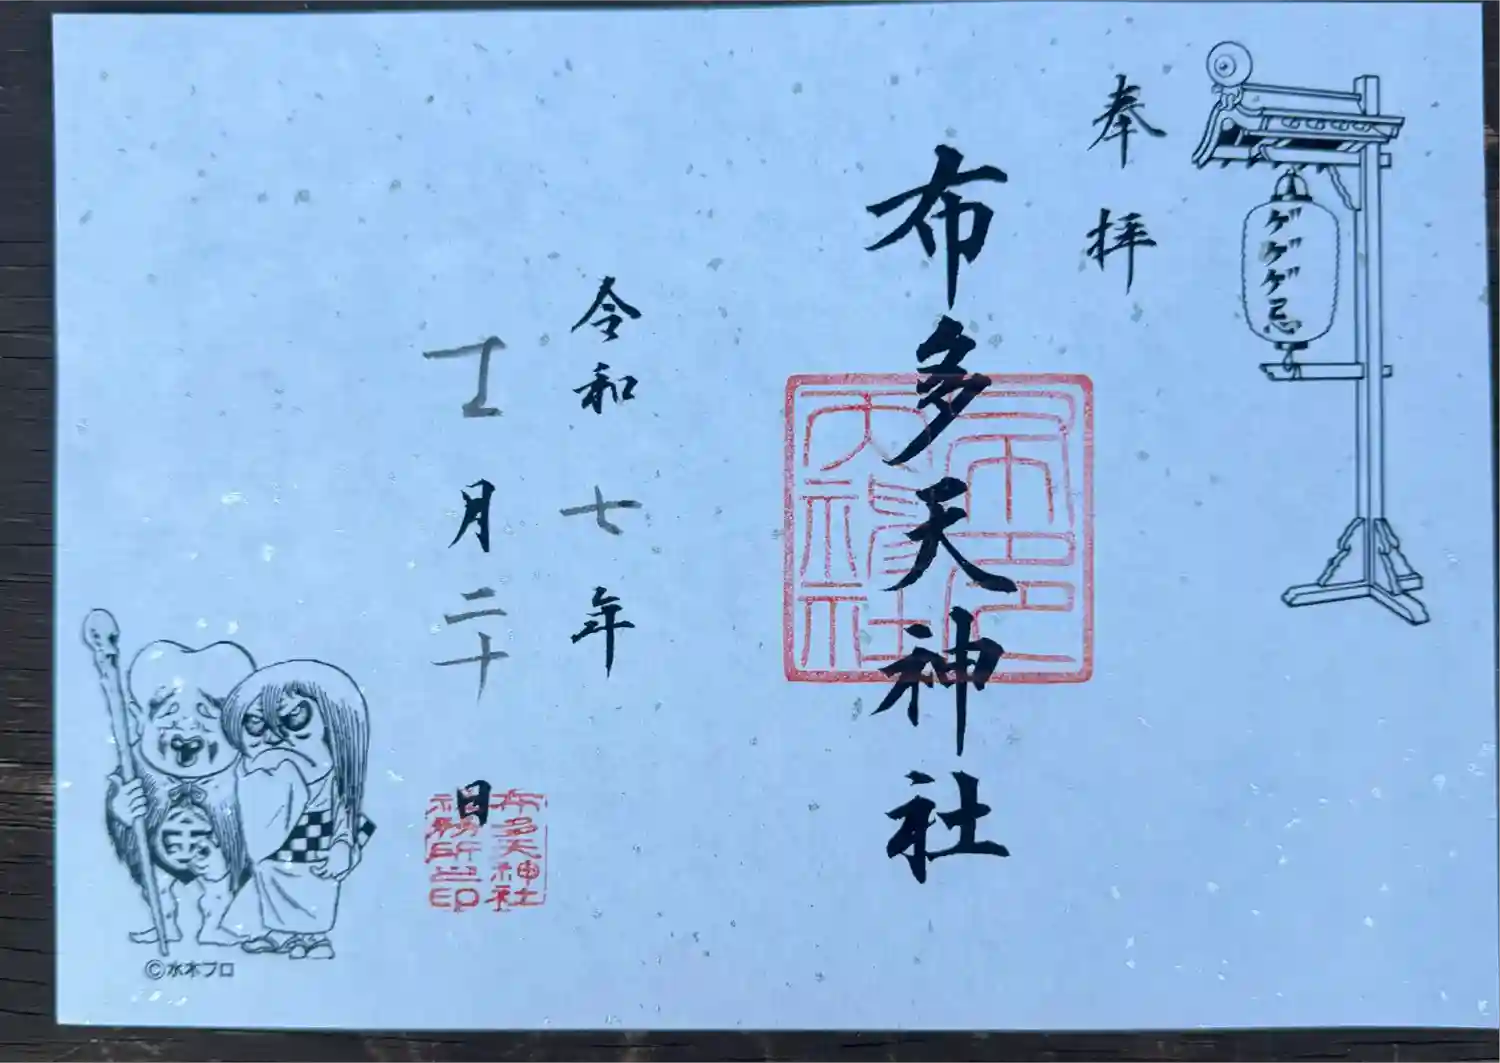 ゲゲゲ忌
奉拝
布多天神社
令和七年
十一月二十日
布多天神社
社務所之印
金
©水木プロ